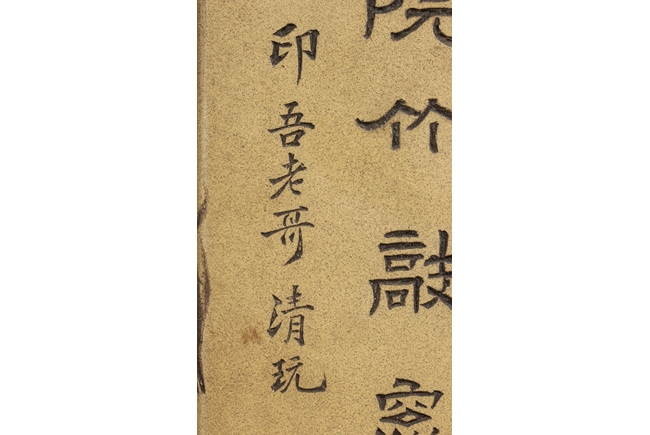 院竹敲窓
印吾老哥清玩